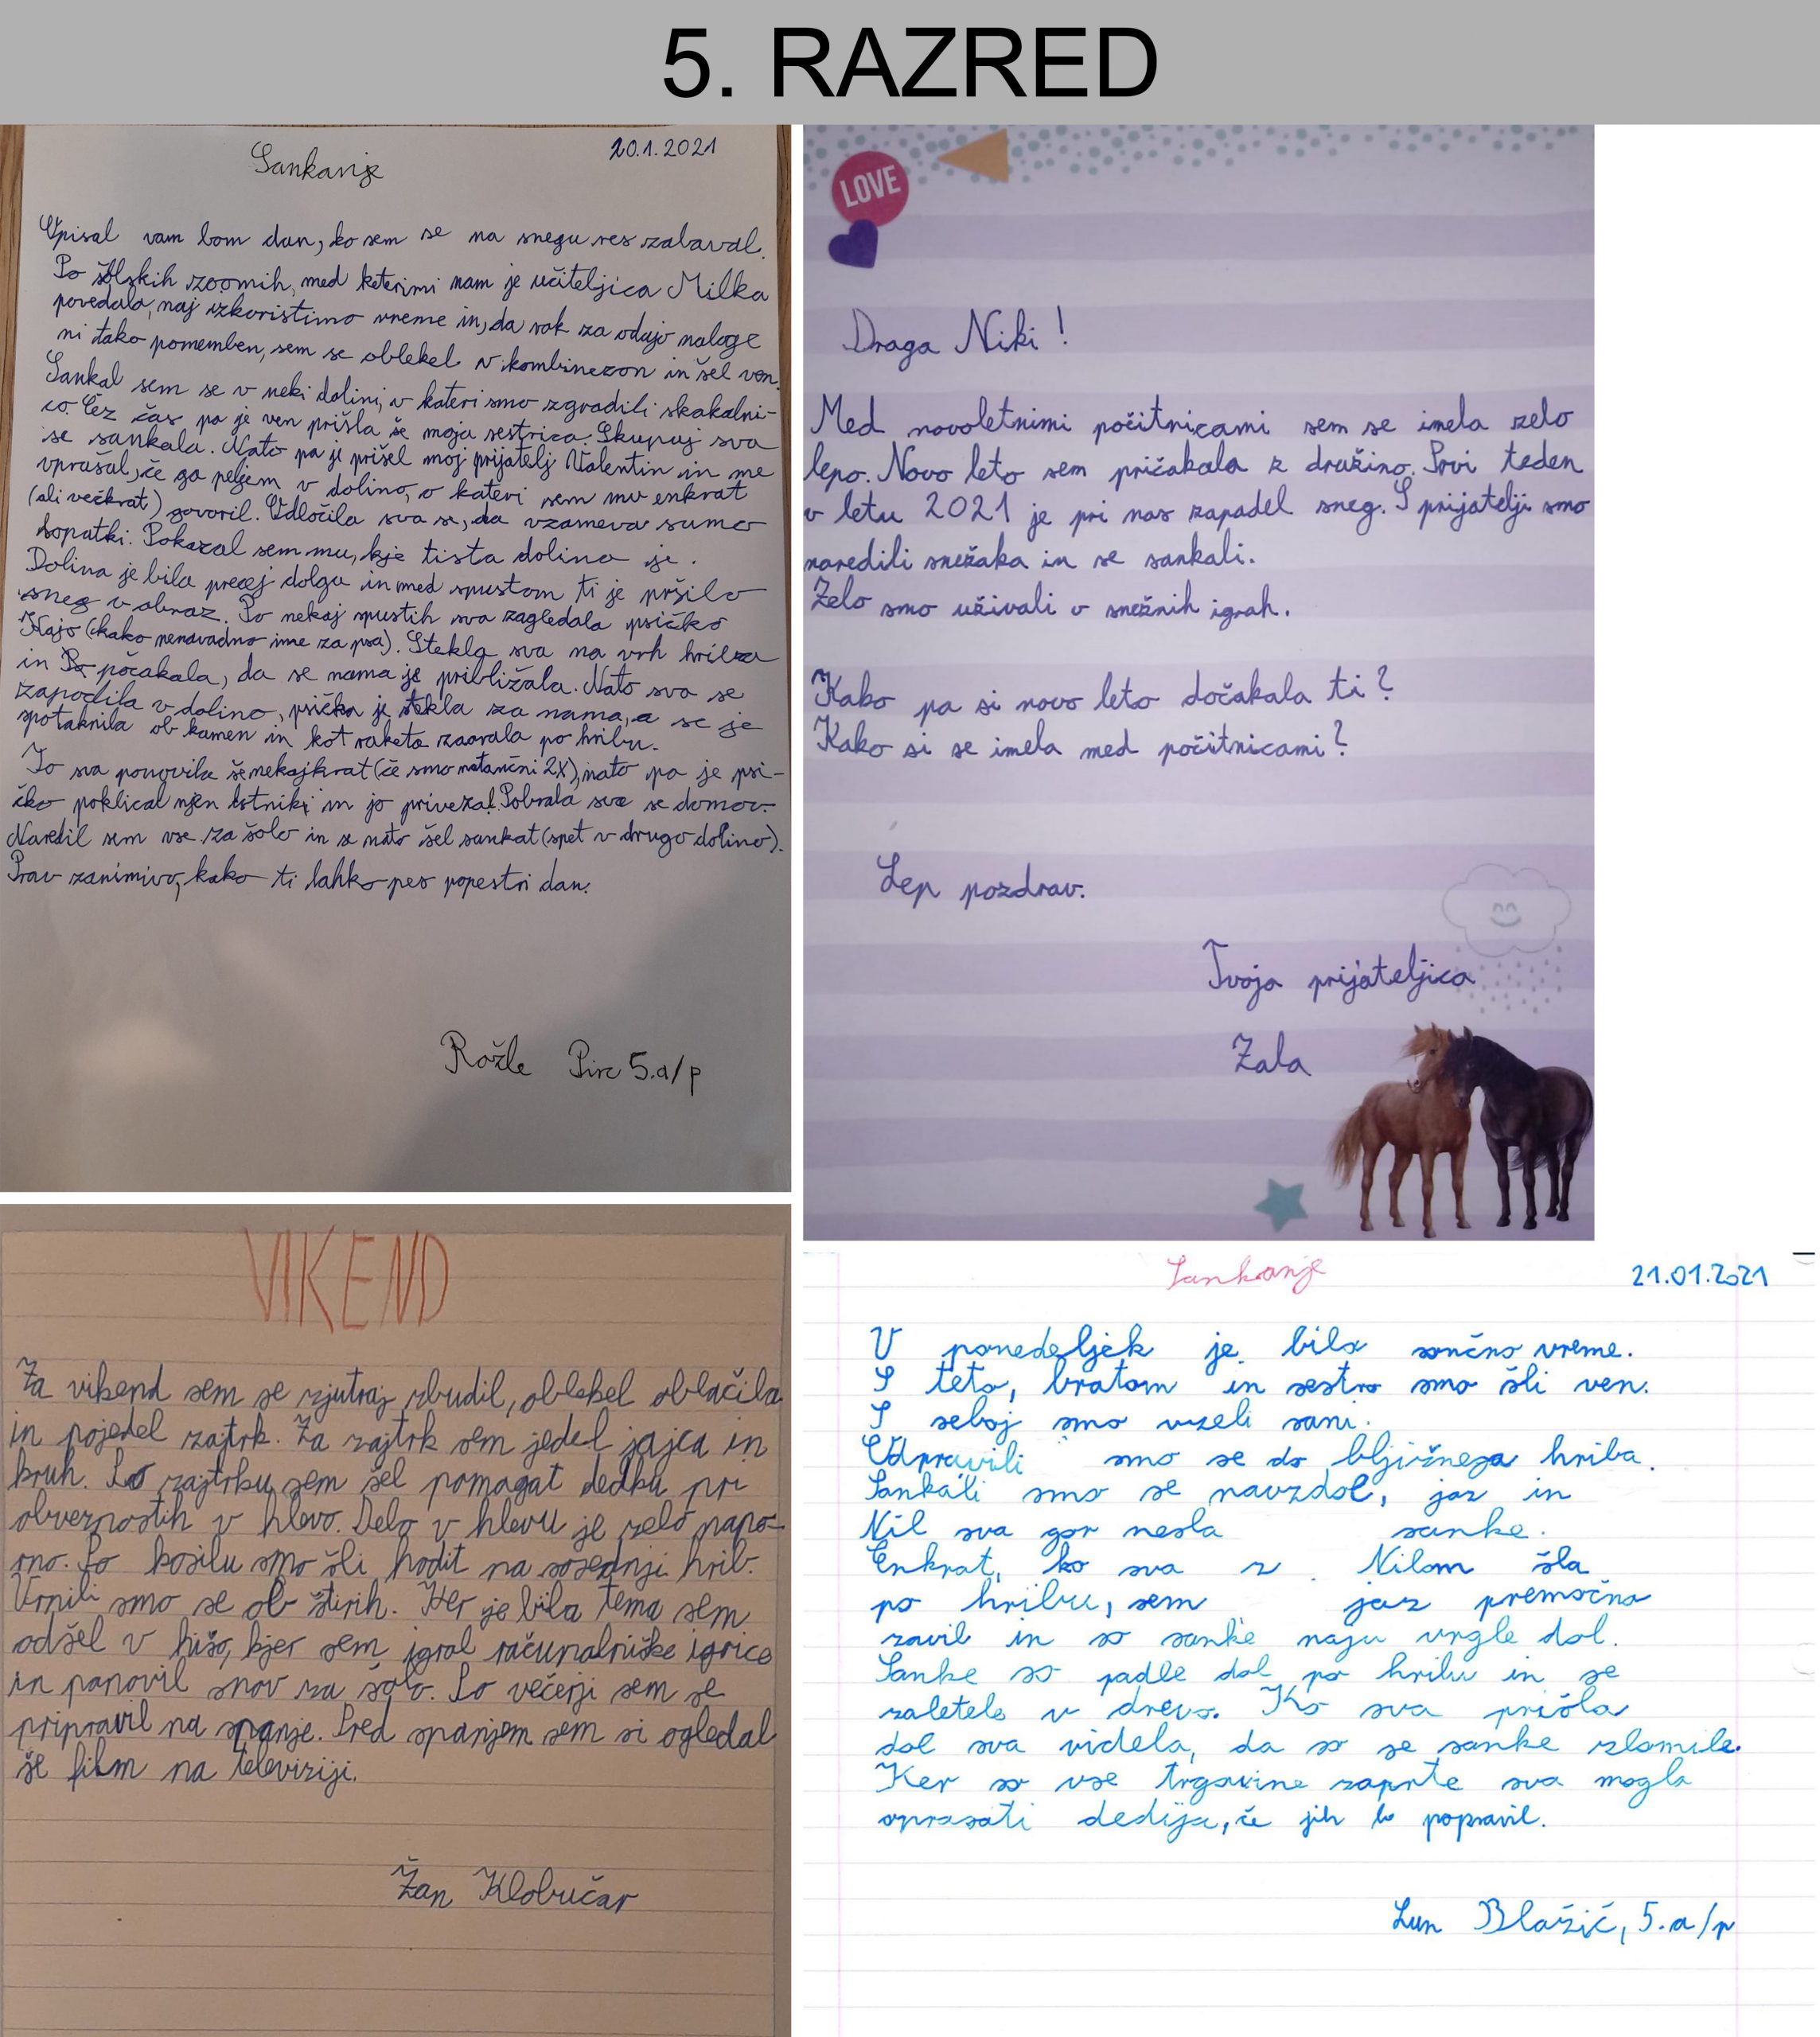 5. RAZRED
Sankanje
20.1.2021
Opisal vam bom dan, ko sem se na snegu res zabaval.
Po šolskih zoomih, med katerimi nam je učiteljica Milka
povedala, naj izkoristimo vreme in, da rok za oddajo naloge
ni tako pomemben, sem se oblekel v kombinezon in šel ven.
Sankal sem se v neki dolini, v kateri smo zgradili skakalni-
co. Čez čas pa je ven prišla še moja sestrica. Skupaj sva
se sankala. Nato pa je prišel moj prijatelj Valentin in me
vprašal, če ga peljem v dolino, o kateri sem mu enkrat
(ali večkrat) govoril. Odločila sva se, da vzameva samo
lopatki. Pokazal sem mu, kje tista dolina je.
Dolina je bila precej dolga in med spustom ti je pršilo
sneg v obraz. Po nekaj spustih sva zagledala psičko
Kajo (kako nenavadno ime za psa). Stekla sva na vrh hriba
in počakala, da se nama je približala. Nato sva se
zapodila v dolino, psička je stekla za nama, a se je
spotaknila ob kamen in kot raketa zaorala po hribu.
To sva ponovila še nekajkrat (če smo natančni 2X), nato pa je psi-
čko poklical njen lstnik in jo privezal. Pobrala sva se domov.
Naredil sem vse za šolo in se nato šel sankat (spet v drugo dolino).
Prav zanimivo, kako ti lahko pes popestri dan.
Rožle Pirc 5.a/p
LOVE
Draga Niki!
Med novoletnimi počitnicami sem se imela zelo
lepo. Novo leto sem pričakala z družino. Prvi teden
v letu 2021 je pri nas zapadel sneg. S prijatelji smo
naredili snežaka in se sankali.
Zelo smo uživali v snežnih igrah.
Kako pa si novo leto dočakala ti?
Kako si se imela med počitnicami?
Lep pozdrav.
Tvoja prijateljica
Zala
VIKEND
Za vikend sem se zjutraj zbudil, oblekel oblačila
in pojedel zajtrk. Za zajtrk sem jedel jajca in
kruh. Po zajtrku sem šel pomagat dedku pri
obveznostih v hlevo. Delo v hlevu je zelo napo-
rno. Po kosilu smo šli hodit na sosednji hrib.
Vrnili smo se ob štirih. Ker je bila tema sem
odšel v hišo, kjer sem igral računalniške igrice
in ponovil snov za šolo. Po večerji sem se
pripravil na spanje. Pred spanjem sem si ogledal
še film na televiziji.
Žan Klobučar
Sankanje
21.01.2021
V ponedeljek je bilo sončno vreme.
S teto, bratom in sestro smo šli ven.
S seboj smo vzeli sani.
Odpravili smo se do bljižnega hriba.
Sankali smo se navzdol, jaz in
Nil sva gor nesla sanke.
Enkrat, ko sva z Nilom šla
po hribu, sem jaz premočno
zavil in so sanke naju vrgle dol.
Sanke so padle dol po hribu in se
zaletele v drevo. Ko sva prišla
dol sva videla, da so se sanke zlomile.
Ker so vse trgovine zaprte sva mogla
vprašati dedija, če jih bo popravil.
Lun Blažić, 5.a/p